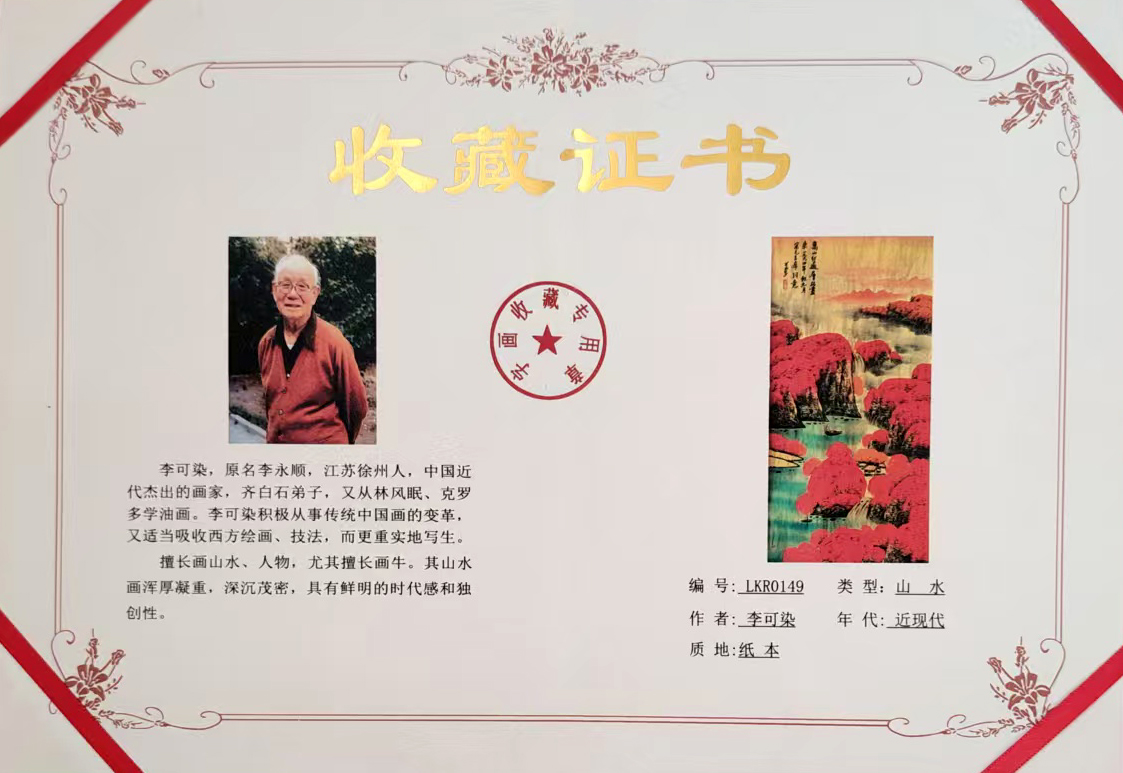 收藏证书
字画收藏专用章
李可染，原名李永顺，江苏徐州人，中国近
代杰出的画家，齐白石弟子，又从林风眠、克罗
多学油画。李可染积极从事传统中国画的变革，
又适当吸收西方绘画、技法，而更重实地写生。
擅长画山水、人物，尤其擅长画牛。其山水
画浑厚凝重，深沉茂密，具有鲜明的时代感和独
创性。
编 号: LKR0149 类 型: 山 水
作 者: 李可染 年 代: 近现代
质 地:纸 本